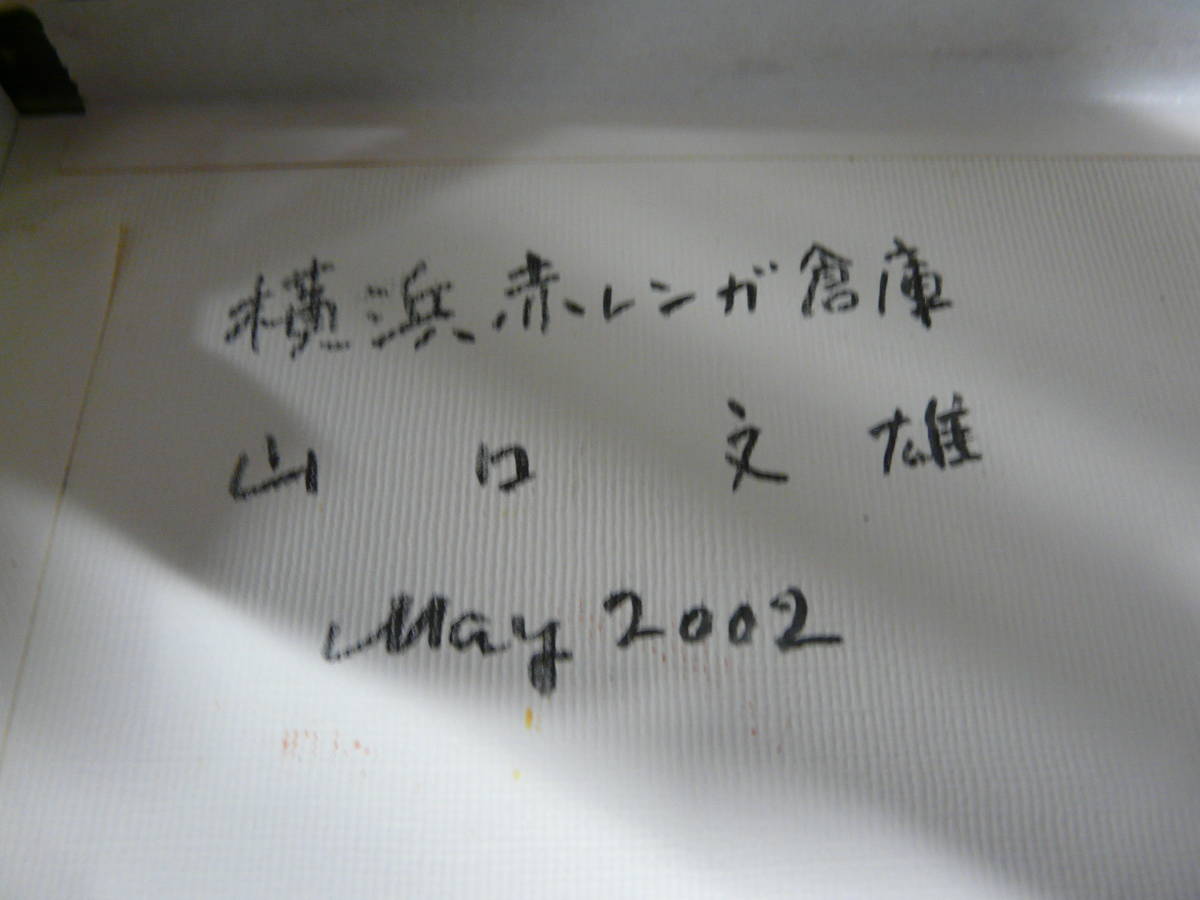 横浜赤レンガ倉庫
山口文雄
May 2002